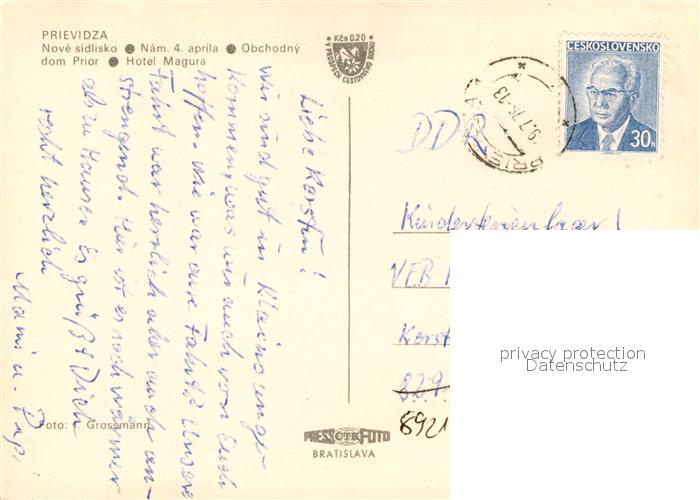 PRIEVIDZA
Nové sídlisko ● Nám. 4. apríla ● Obchodný
dom Prior ● Hotel Magura
Kčs 0.20
V PROSPECH CESTOVNÉHO RUCHU
ČESKOSLOVENSKO
30h
Liebe Kerstin!
wir sind gut in ange-
kommen, was wir auch von Euch
hoffen. Wie war eure Fahrt? Unsere
Fahrt war herzlich aber auch an-
strengend. Hier ist es noch wärmer
als zu Hause. Es grüßt Dich
recht herzlich
Mami u. Papi
DDR
Kinderferienlager!
VEB
Kerst
829
8921
Foto: Grossmann
PRESSFOTO
BRATISLAVA
privacy protection
Datenschutz